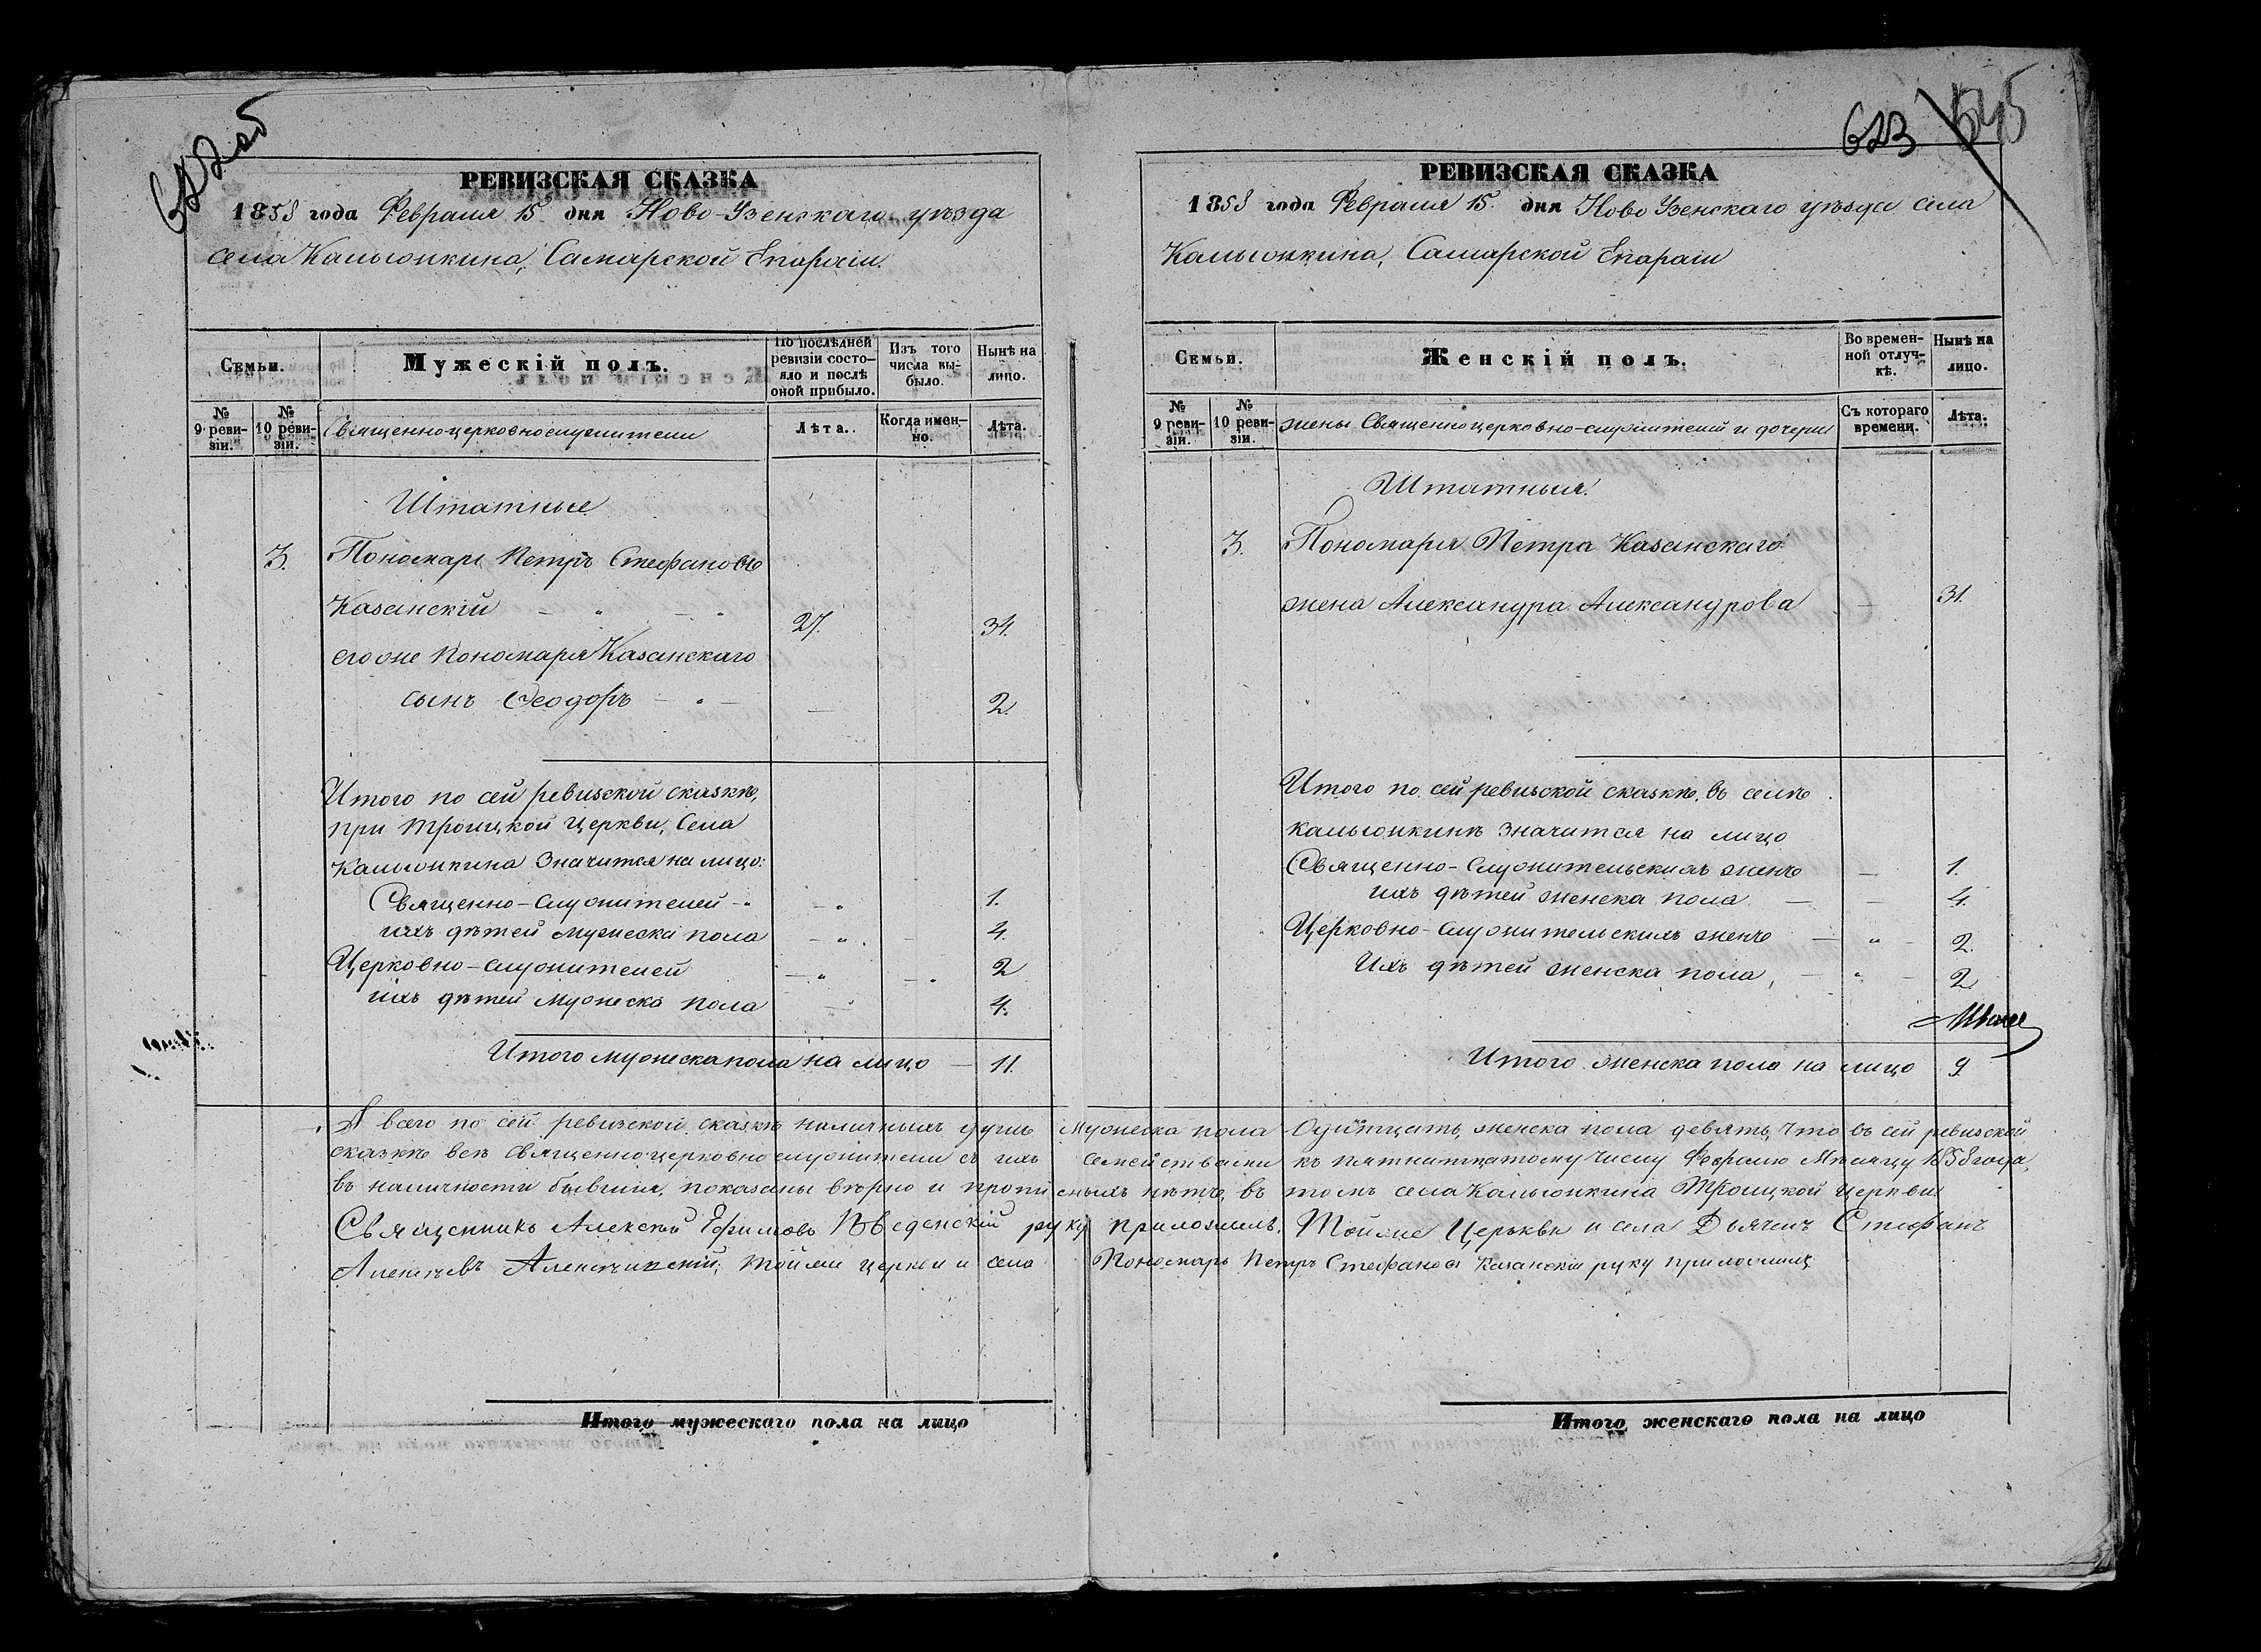 622 об
РЕВИЗСКАЯ СКАЗКА
1858 года Февраля 15 дня Ново-Узенскаго уѣзда
села Кальюпкина, Самарской Епархіи.
Семьи.
Мужескій полъ.
По послѣдней ревизіи состо-
яло и послѣ
оной прибыло.
Изъ того
числа вы-
было.
Нынѣ на
лицо.
№
9 реви-
зіи.
№
10 реви-
зіи.
Священноцерковнослужители
Лѣта.
Когда имен-
но.
Лѣта.
Штатные
3. Пономарь Петръ Стефановъ
Казанскій 27. 34.
егоже Пономаря Казанскаго
сынъ Ѳеодоръ 2.
Итого по сей ревизской сказкѣ,
при Троицкой церкви, Села
Кальюпкина значится на лицо:
Священно-служителей 1.
ихъ дѣтей мужеска пола 4.
Церковно-служителей 2
ихъ дѣтей мужеска пола 4.
Итого мужеска пола на лицо 11.
623 545
РЕВИЗСКАЯ СКАЗКА
1858 года Февраля 15. дня Ново Узенскаго уѣзда села
Кальюпкина, Самарской Епархіи
Семьи.
Женскій полъ.
Во времен-
ной отлуч-
кѣ.
Нынѣ на
лицо.
№
9 реви-
зіи.
№
10 реви-
зіи.
жены Священноцерковно-служителей и дочери
Съ котораго
времени.
Лѣта.
Штатныя.
3. Пономаря Петра Казанскаго
жена Александра Александрова 31.
Итого по сей ревизской сказкѣ, въ селѣ
Кальюпкинѣ значится на лицо
Священно-служительскихъ женъ 1.
ихъ дѣтей женска пола 4.
Церковно-служительскихъ женъ 2.
Ихъ дѣтей женска пола, 2
Итого женска пола на лицо 9
А всего по сей ревизской сказкѣ наличныхъ душъ мужеска пола одинадцать, женска пола девять, Что въ сей ревизской
сказкѣ всѣ священноцерковнослужители съ ихъ семействами къ пятнадцатому числу Февралю Мѣсяцу 1858 года,
въ наличности бывшія, показаны вѣрно и прописныхъ нѣтъ, въ томъ села Кальюпкина Троицкой церкви
Священникъ Алексѣй Ефимовъ Введенскій руку приложилъ, Тойже Церькви и села Дьячекъ Стефанъ
Алексѣевъ тойже церкви и села Пономарь Петръ Стефановъ Казанскій руку приложилъ
Итого мужескаго пола на лицо
Итого женскаго пола на лицо